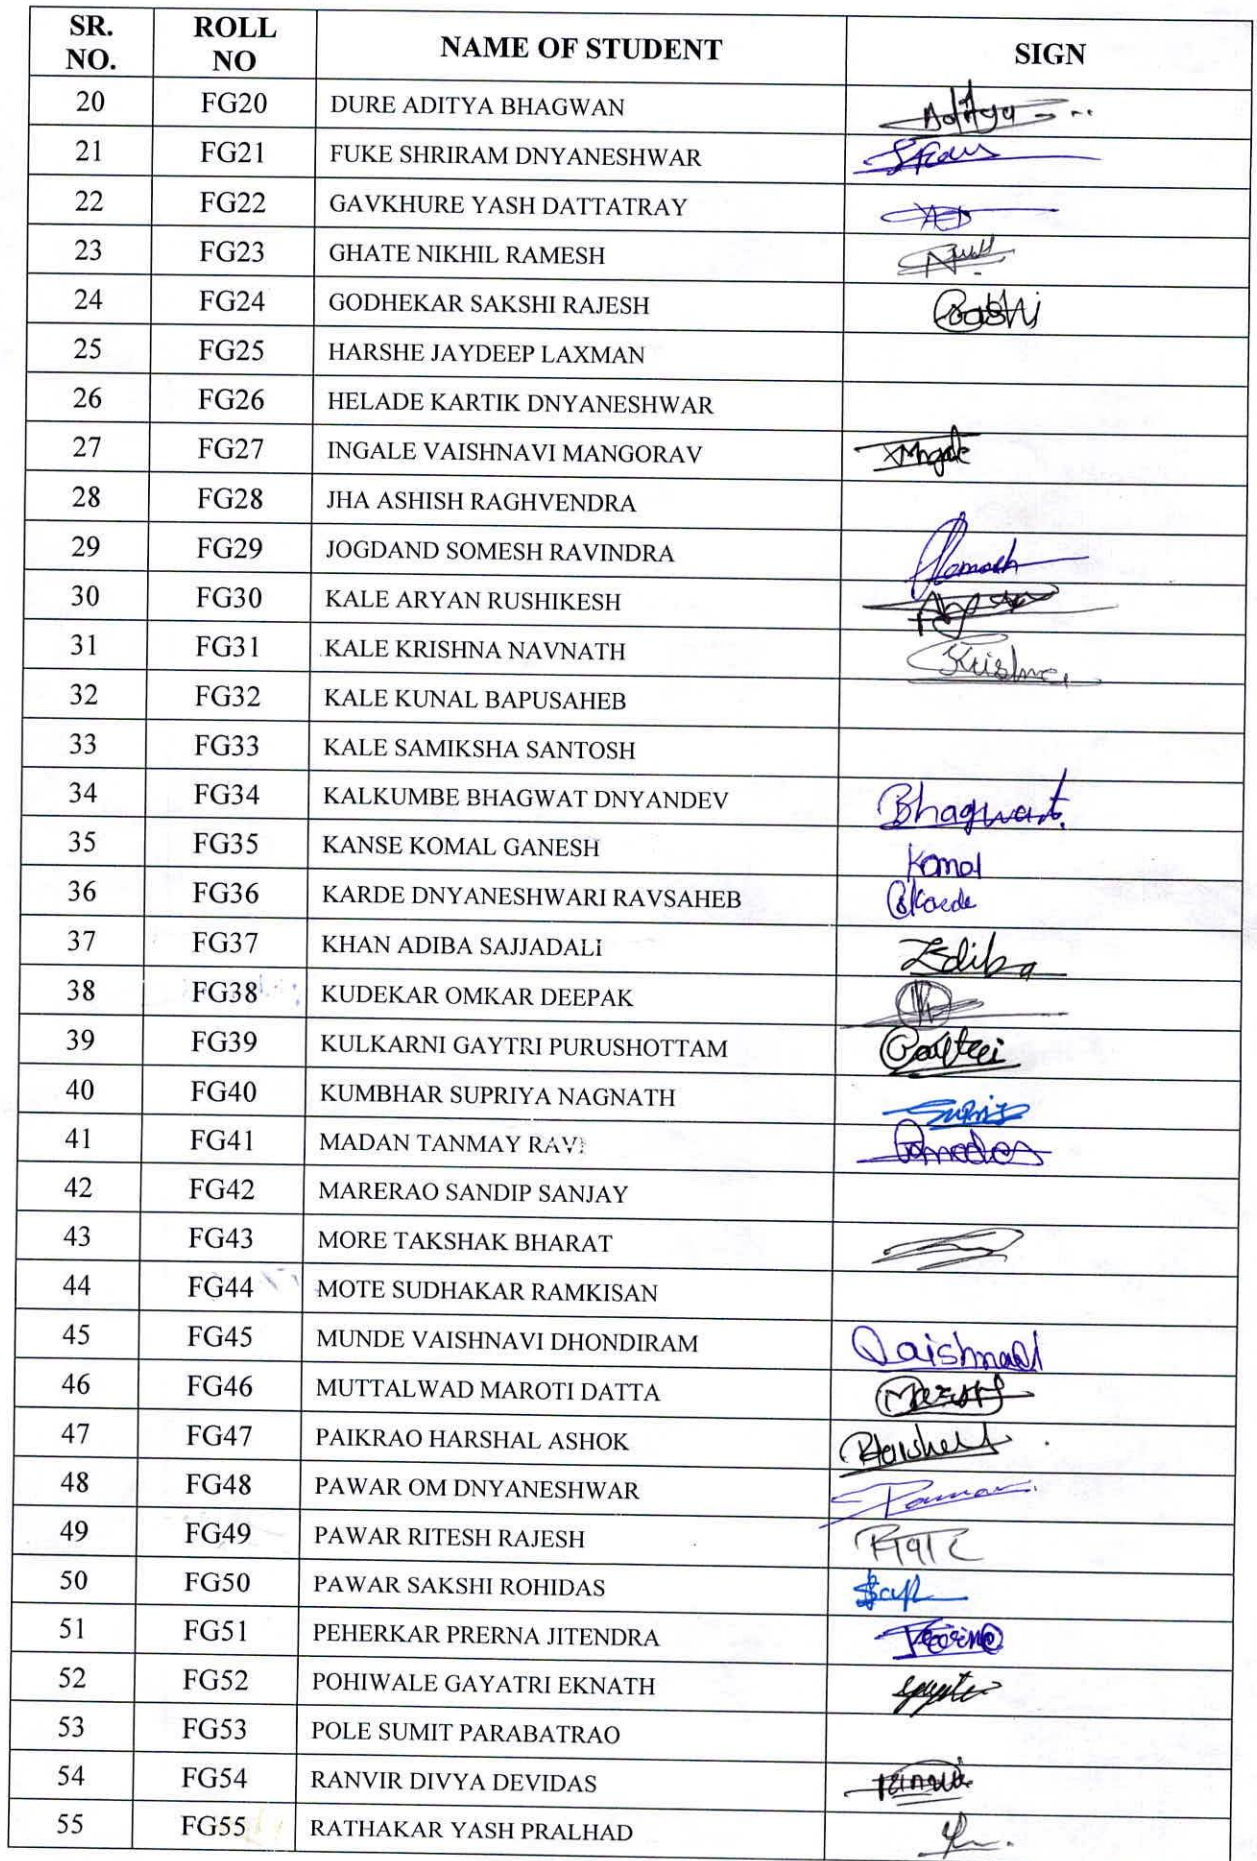 SR. NO. ROLL NO NAME OF STUDENT SIGN
20 FG20 DURE ADITYA BHAGWAN Aditya
21 FG21 FUKE SHRIRAM DNYANESHWAR
22 FG22 GAVKHURE YASH DATTATRAY
23 FG23 GHATE NIKHIL RAMESH
24 FG24 GODHEKAR SAKSHI RAJESH
25 FG25 HARSHE JAYDEEP LAXMAN
26 FG26 HELADE KARTIK DNYANESHWAR
27 FG27 INGALE VAISHNAVI MANGORAV
28 FG28 JHA ASHISH RAGHVENDRA
29 FG29 JOGDAND SOMESH RAVINDRA
30 FG30 KALE ARYAN RUSHIKESH
31 FG31 KALE KRISHNA NAVNATH Krishna
32 FG32 KALE KUNAL BAPUSAHEB
33 FG33 KALE SAMIKSHA SANTOSH
34 FG34 KALKUMBE BHAGWAT DNYANDEV Bhagwat
35 FG35 KANSE KOMAL GANESH Komal
36 FG36 KARDE DNYANESHWARI RAVSAHEB
37 FG37 KHAN ADIBA SAJJADALI
38 FG38 KUDEKAR OMKAR DEEPAK
39 FG39 KULKARNI GAYTRI PURUSHOTTAM Gaytri
40 FG40 KUMBHAR SUPRIYA NAGNATH
41 FG41 MADAN TANMAY RAVI
42 FG42 MARERAO SANDIP SANJAY
43 FG43 MORE TAKSHAK BHARAT
44 FG44 MOTE SUDHAKAR RAMKISAN
45 FG45 MUNDE VAISHNAVI DHONDIRAM
46 FG46 MUTTALWAD MAROTI DATTA
47 FG47 PAIKRAO HARSHAL ASHOK
48 FG48 PAWAR OM DNYANESHWAR
49 FG49 PAWAR RITESH RAJESH
50 FG50 PAWAR SAKSHI ROHIDAS
51 FG51 PEHERKAR PRERNA JITENDRA
52 FG52 POHIWALE GAYATRI EKNATH
53 FG53 POLE SUMIT PARABATRAO
54 FG54 RANVIR DIVYA DEVIDAS
55 FG55 RATHAKAR YASH PRALHAD